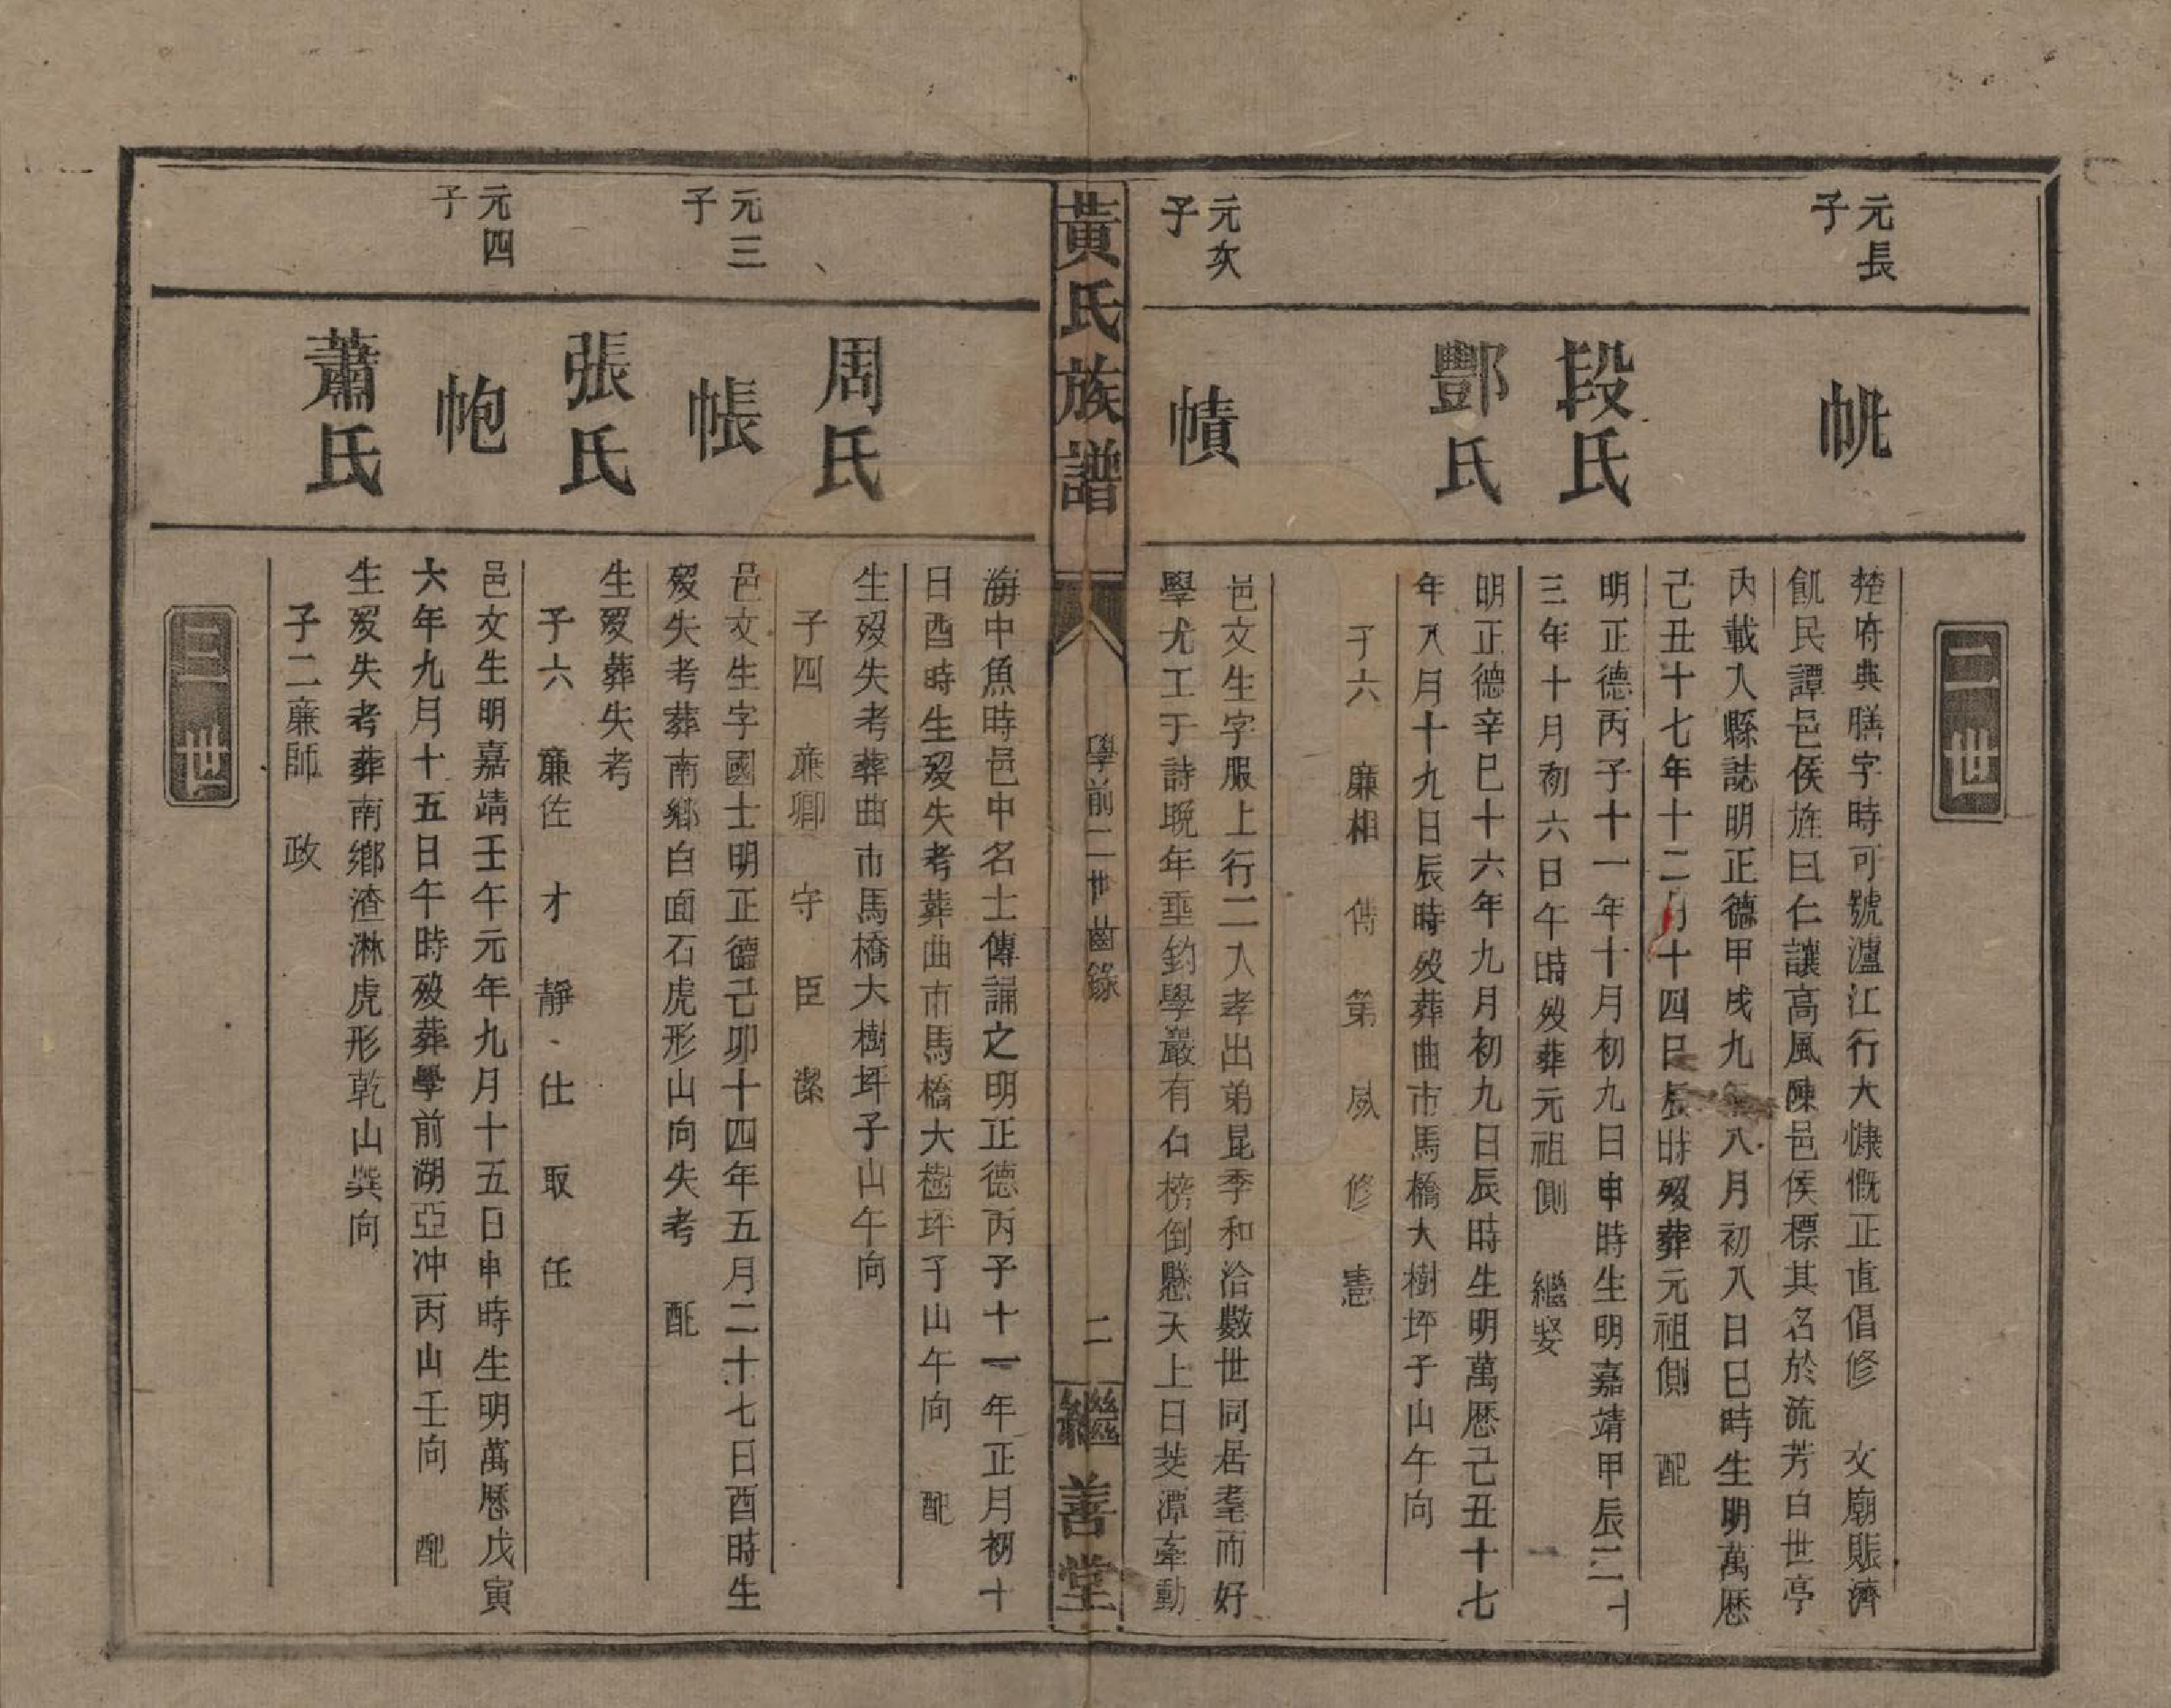 二世
元長
子
帨
楚府典膳字時可號瀘江行大慷慨正直倡修　文廟賑濟
飢民譚邑侯旌曰仁讓高風陳邑侯標其名於流芳百世亭
內載入縣誌明正德甲戌九年八月初八日巳時生明萬歷
己丑十七年十二月十四日辰時歿葬元祖側　配
段氏
明正德丙子十一年十月初九日申時生明嘉靖甲辰二十
三年十月初六日午時歿葬元祖側　繼娶
酆氏
明正德辛巳十六年九月初九日辰時生明萬歷己丑十七
年八月十九日辰時歿葬曲市馬橋大樹坪子山午向
子六　廉相　傅　第　威　修　憲
元次
子
幘
邑文生字服上行二入孝出弟昆季和洽數世同居耄而好
學尤工于詩晚年垂釣學巖有石榜倒懸天上日芰潭牽動
黃氏族譜
學前二世齒錄
二
繼善堂
海中魚時邑中名士傳誦之明正德丙子十一年正月初十
日酉時生歿失考葬曲市馬橋大樹坪子山午向　配
周氏
生歿失考葬曲市馬橋大樹坪子山午向
子四　廉卿　守　臣　潔
元三
子
帳
邑文生字國士明正德己卯十四年五月二十七日酉時生
歿失考葬南鄉白面石虎形山向失考　配
張氏
生歿葬失考
子六　廉佐　才　靜　仕　取　任
元四
子
帊
邑文生明嘉靖壬午元年九月十五日申時生明萬歷戊寅
六年九月十五日午時歿葬學前湖亞冲丙山壬向　配
蕭氏
生歿失考葬南鄉渣淋虎形乾山巽向
子二廉師　政
三世